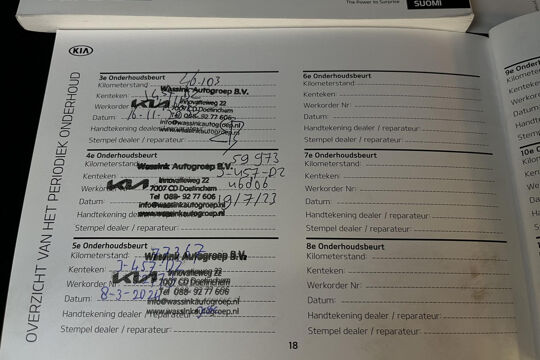 The Power to Surprise
SUOMI
KIA
OVERZICHT VAN HET PERIODIEK ONDERHOUD
3e Onderhoudsbeurt
Kilometerstand:
Kenteken:
Werkorder
Datum:
Handtekening dealer
Stempel dealer / reparateur:
Wassink Autogroep B.V.
KIA
Innovatieweg 22
7007 CD Doetinchem
Tel 088- 92 77 606
info@wassinkautogroep.nl
www.wassinkautogroep.nl
4e Onderhoudsbeurt
Kilometerstand
59 973
Kenteken:
J-457-DZ
Werkorder
46606
Datum:
18/7/23
Handtekening dealer / reparateur:
Stempel dealer / reparateur:
Wassink Autogroep B.V.
KIA
Innovatieweg 22
7007 CD Doetinchem
Tel 088- 92 77 606
info@wassinkautogroep.nl
www.wassinkautogroep.nl
5e Onderhoudsbeurt
Kilometerstand:
Kenteken:
Werkorder Nr
Datum:
8-3-202
Handtekening dealer / reparateur:
Stempel dealer / reparateur:
Wassink Autogroep B.V.
KIA
Innovatieweg 22
7007 CD Doetinchem
Tel 088- 92 77 606
info@wassinkautogroep.nl
www.wassinkautogroep.nl
6e Onderhoudsbeurt
Kilometerstand:
Kenteken:
Werkorder Nr:
Datum:
Handtekening dealer / reparateur:
Stempel dealer / reparateur:
7e Onderhoudsbeurt
Kilometerstand:
Kenteken:
Werkorder Nr:
Datum:
Handtekening dealer / reparateur:
Stempel dealer / reparateur:
8e Onderhoudsbeurt
Kilometerstand:
Kenteken:
Werkorder Nr:
Datum:
Handtekening dealer / reparateur:
Stempel dealer / reparateur:
18
9e Onder
Kilometer
Kenteken
Werkorde
Datum:
Handteke
Stempel
10e
Kilo
Ken
We